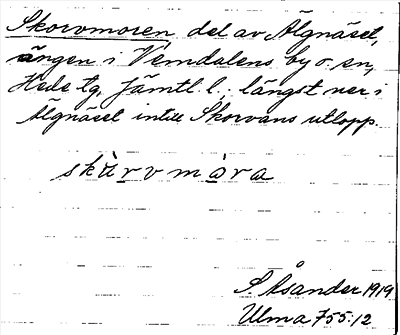 Skorvmoren, del av Älgnäset,
ängen i Vemdalens by o. sn,
Hede tg, Jämtl. l. längst ner i
Älgnäset intill Skorvans utlopp.
skàrvmàra
S. Åsander 1919
Ulma 755:12